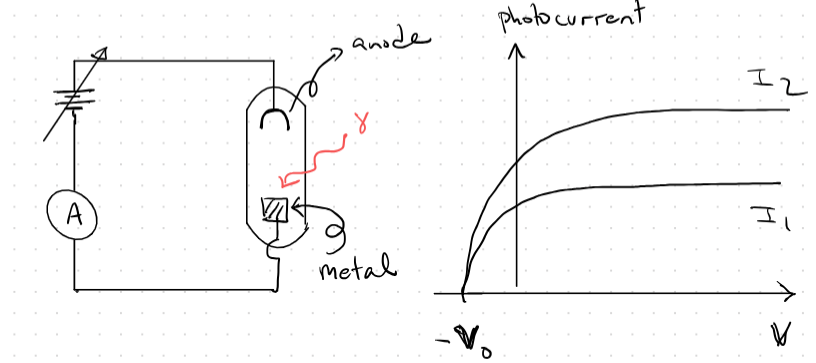 anode
γ
A
metal
photocurrent
I₂
I₁
-V₀
V